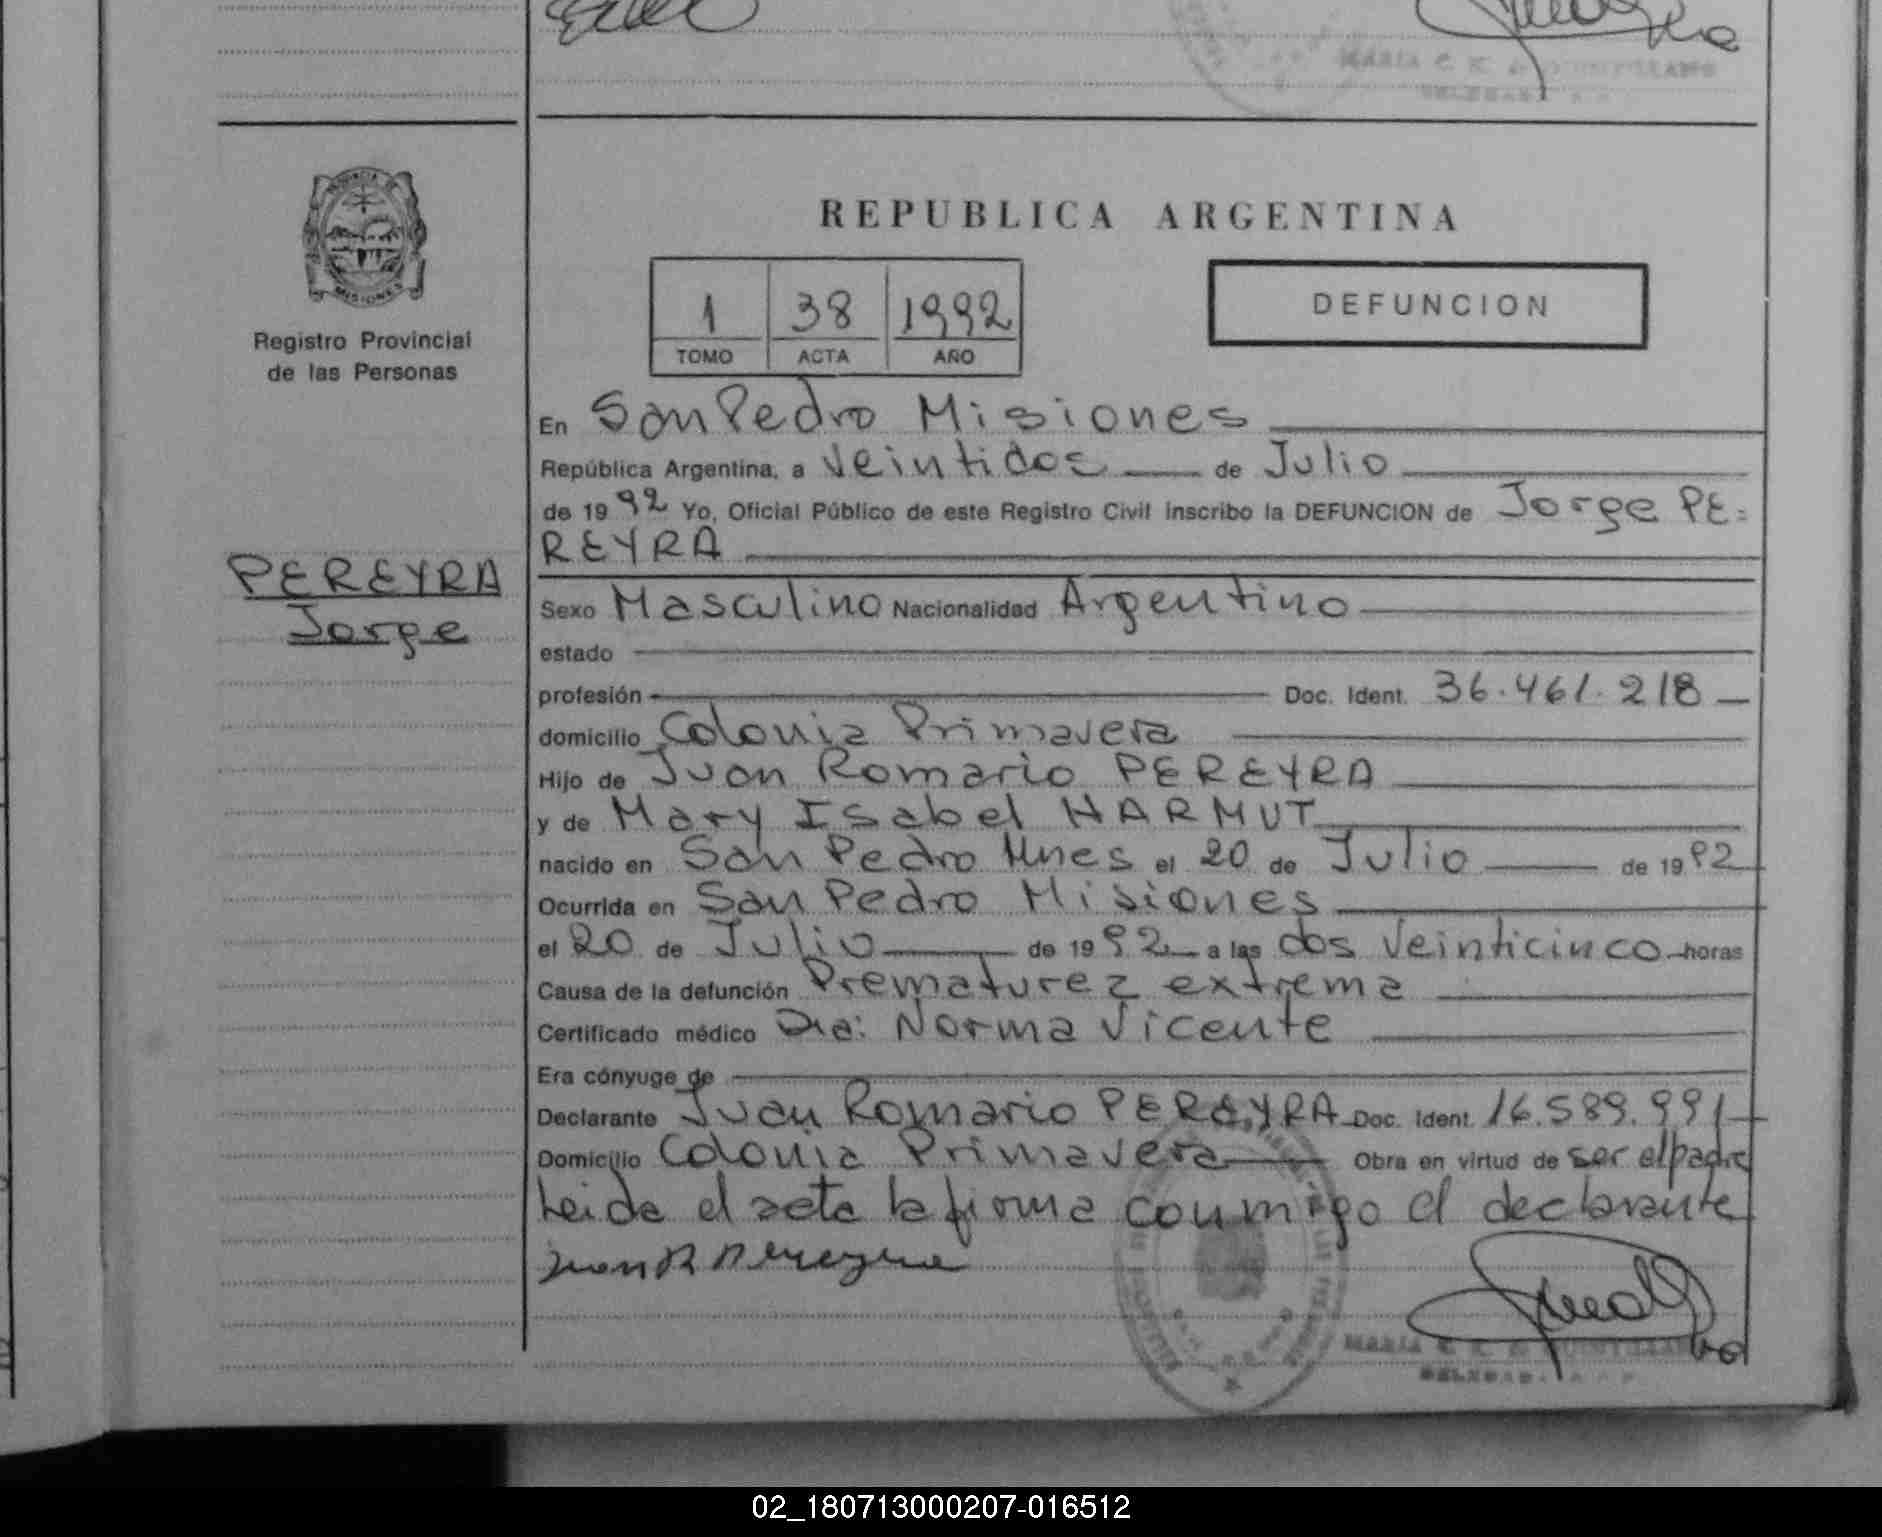 MARIA C. K. de QUINTILLANO
PROVINCIA DE
MISIONES
Registro Provincial
de las Personas
PEREYRA
Jorge
REPUBLICA ARGENTINA
1 38 1992
TOMO ACTA AÑO
DEFUNCION
En San Pedro Misiones
República Argentina, a veintidos de Julio
de 1992 Yo, Oficial Público de este Registro Civil inscribo la DEFUNCION de Jorge PE=
REYRA
Sexo Masculino Nacionalidad Argentino
estado
profesión Doc. Ident. 36.461.218
domicilio Colonia Primavera
Hijo de Juan Romario PEREYRA
y de Mary Isabel HARMUT
nacido en San Pedro Mnes el 20 de Julio de 1992
Ocurrida en San Pedro Misiones
el 20 de Julio de 1992 a las dos veinticinco horas
Causa de la defunción Prematurez extrema
Certificado médico Dra: Norma Vicente
Era cónyuge de
Declarante Juan Romario PEREYRA Doc. Ident. 16.589.991
Domicilio Colonia Primavera Obra en virtud de ser el padre
Leida el acta la firma conmigo el declarante
Juan R Pereyra
MARIA C. K. de QUINTILLANO
02_180713000207-016512